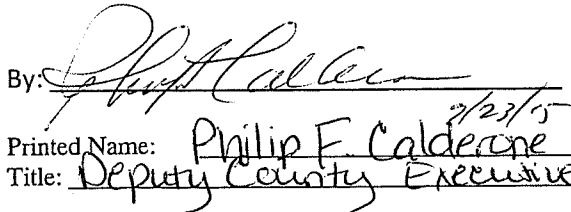 By:
2/23/15
Printed Name: Philip F. Calderone
Title: Deputy County Executive